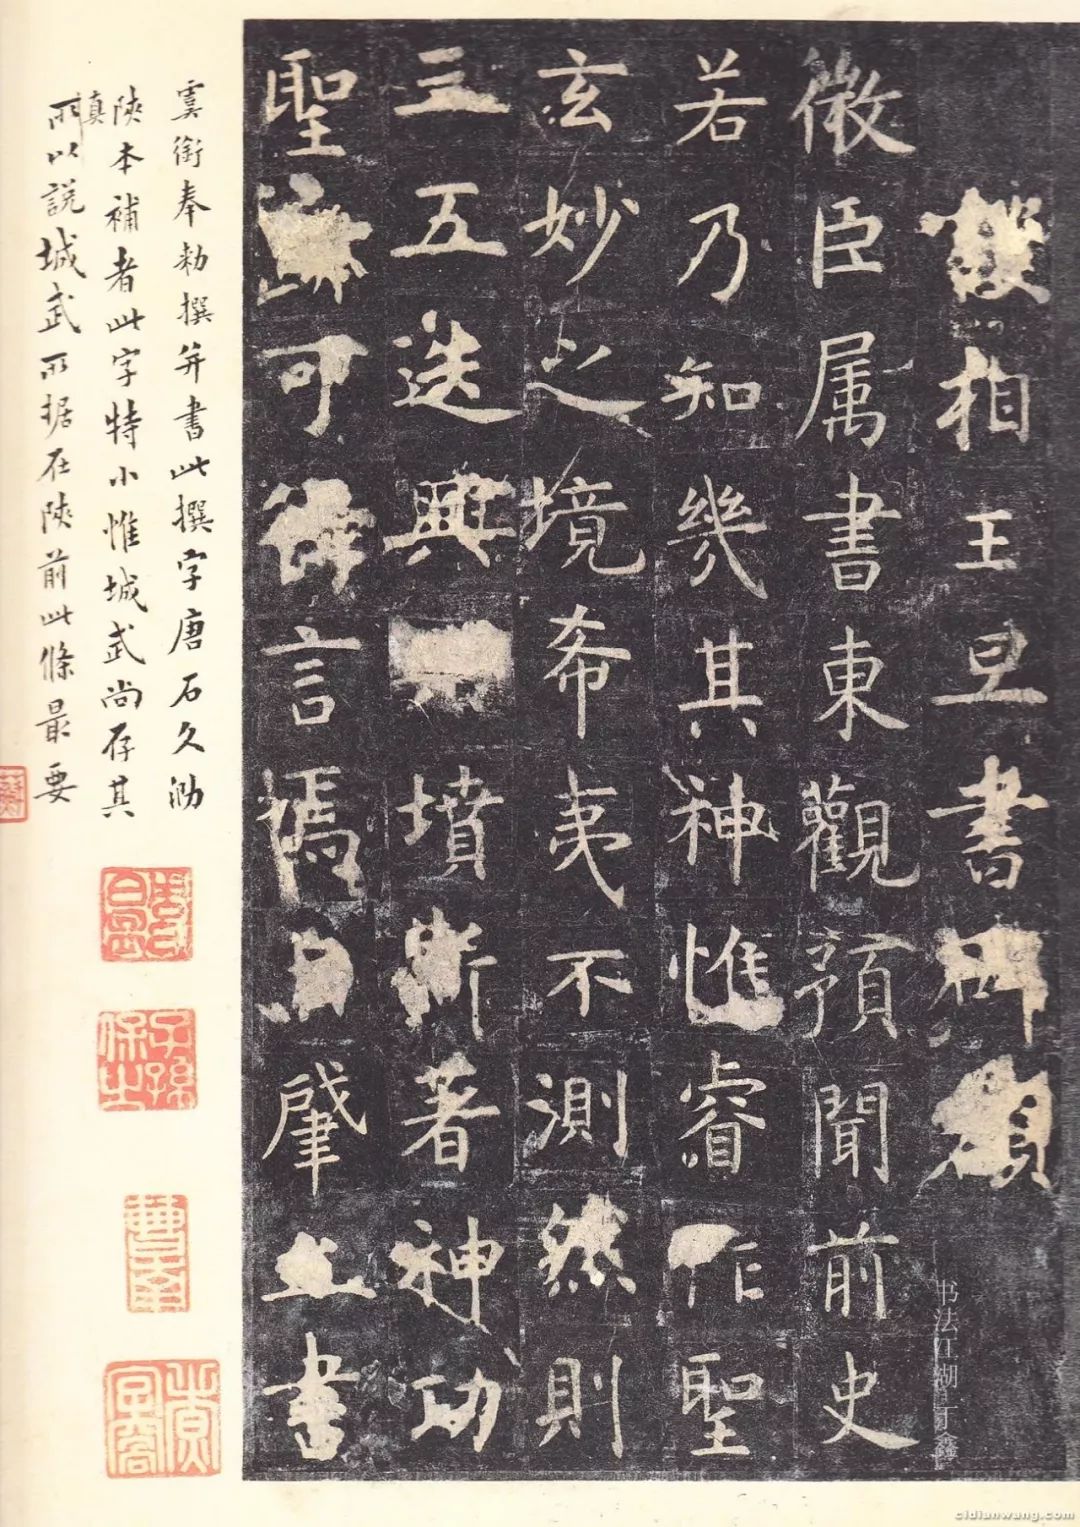 護相王旦書碑額
微臣属書東觀預聞前史
若乃知幾其神惟睿作聖
玄妙之境希夷不測然則
三五迭興墳斯著神功
聖迹可得言焉自肇立書
虞銜奉勅撰并書此撰字唐石久泐
陝本補者此字特小惟城武尚存其
真
所以說城武所据在陝前此條最要
子孫保之
书法江湖 于鑫
cidianwang.com